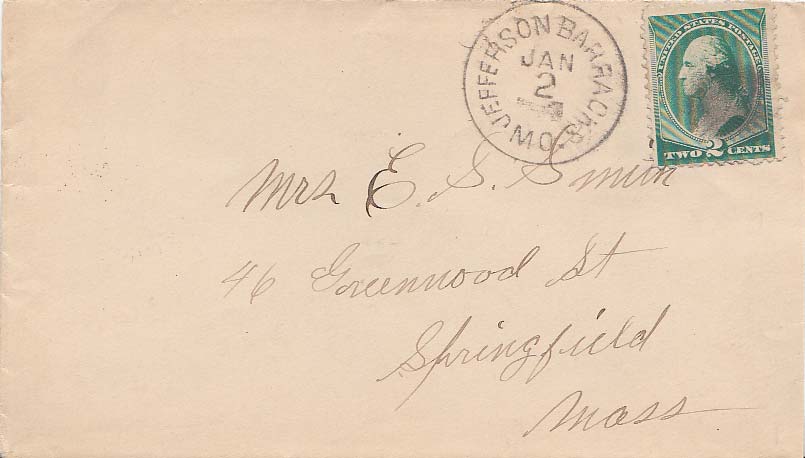 JEFFERSON BARRACKS
JAN
2
MO.
UNITED STATES POSTAGE
TWO 2 CENTS
Mrs E. S. Smith
46 Greenwood St
Springfield
Mass